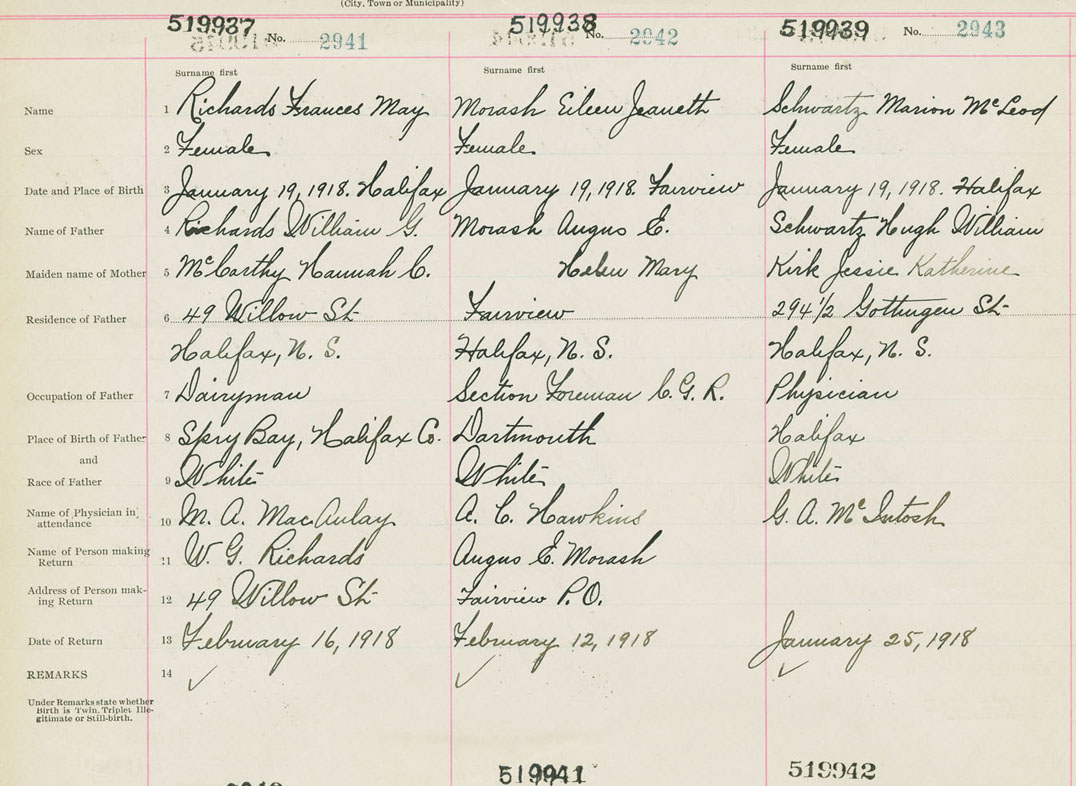 (City, Town or Municipality)
519937 519938 519939
No. 2941 No. 2942 No. 2943
Surname first Surname first Surname first
Name 1 Richards Frances May Morash Eileen Jeaneth Schwartz Marion McLeod
Sex 2 Female Female Female
Date and Place of Birth 3 January 19, 1918. Halifax January 19, 1918. Fairview January 19, 1918. Halifax
Name of Father 4 Richards William G. Morash Angus E. Schwartz Hugh William
Maiden name of Mother 5 McCarthy Hannah C. Helen Mary Kirk Jessie Katherine
Residence of Father 6 49 Willow St Fairview 294 1/2 Gottingen St
Halifax, N. S. Halifax, N. S. Halifax, N. S.
Occupation of Father 7 Dairyman Section Foreman C. G. R. Physician
Place of Birth of Father 8 Spry Bay, Halifax Co. Dartmouth Halifax
and
Race of Father 9 White White White
Name of Physician in attendance 10 M. A. MacAulay A. C. Hawkins G. A. McIntosh
Name of Person making Return 11 W. G. Richards Angus E. Morash
Address of Person making Return 12 49 Willow St Fairview P.O.
Date of Return 13 February 16, 1918 February 12, 1918 January 25, 1918
REMARKS 14
Under Remarks state whether
Birth is Twin, Triplet Ille-
gitimate or Still-birth.
519941 519942